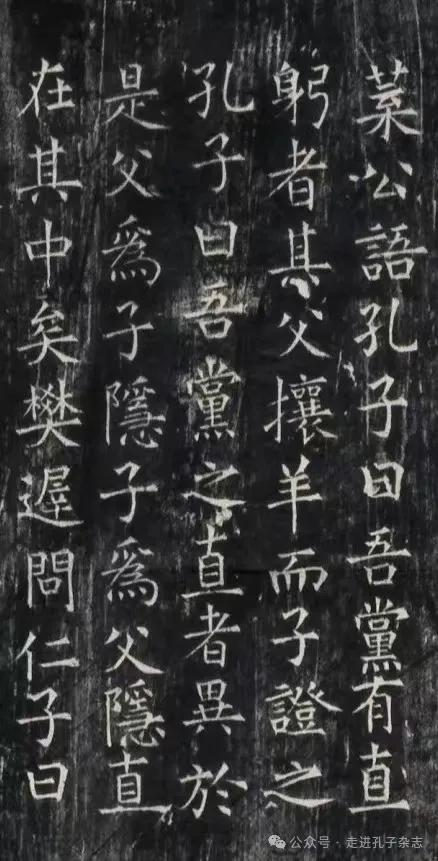 葉公語孔子曰吾黨有直
躬者其父攘羊而子證之
孔子曰吾黨之直者異於
是父為子隱子為父隱直
在其中矣樊遲問仁子曰
公众号·走进孔子杂志